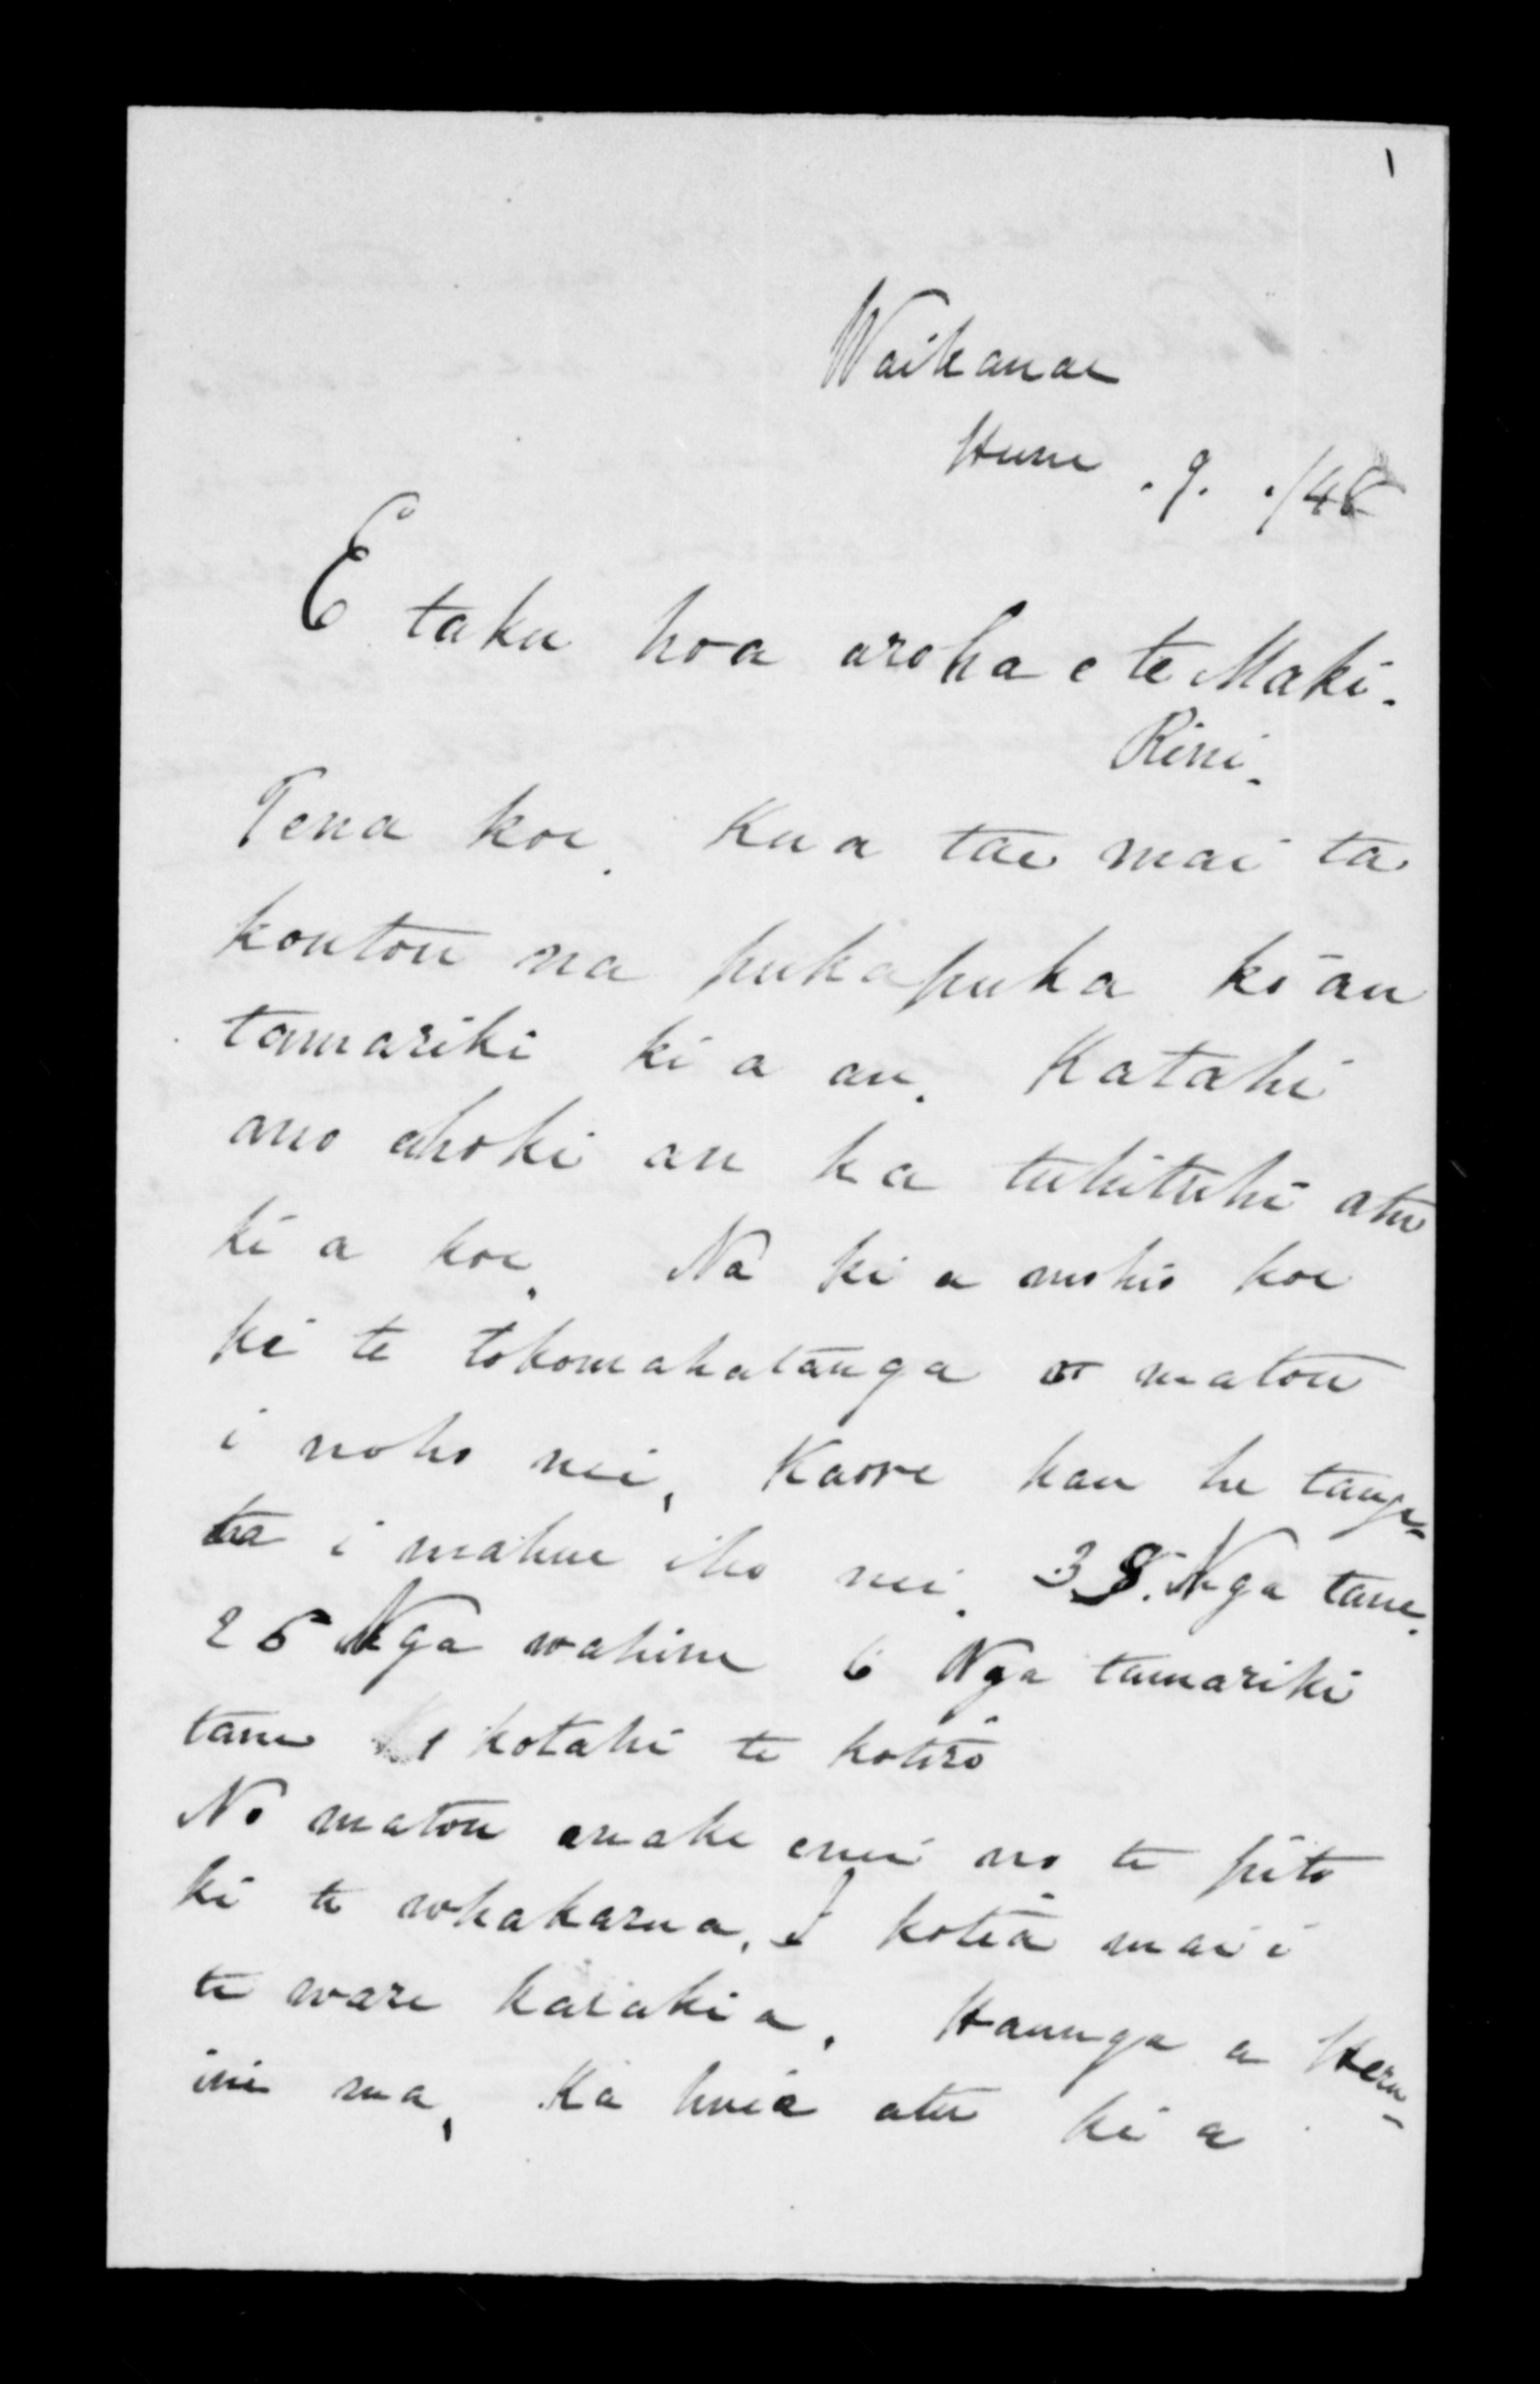 1
Waikanae
Hune . 9. ./48
E taku hoa aroha e te Maki-
Rini.
Tena koe. Kua tae mai ta
koutou na pukapuka ko au
tamariki ki a au. Katahi
ano ahoki au ka tuhituhi atu
ki a koe. Na ki a mohio koe
ki te tokomahatanga o matou
i noho nei, Kaore kau he tanga-
ta i mahue iho nei. 38. Nga tane.
26 Nga wahine 6 Nga tamariki
tane 1 kotahi te kotiro
No matou anake enei no te pito
ki te whakarua, I kotia mai i
te ware karakia. Haunga a Heru-
ini ma, Ka huia atu ki a